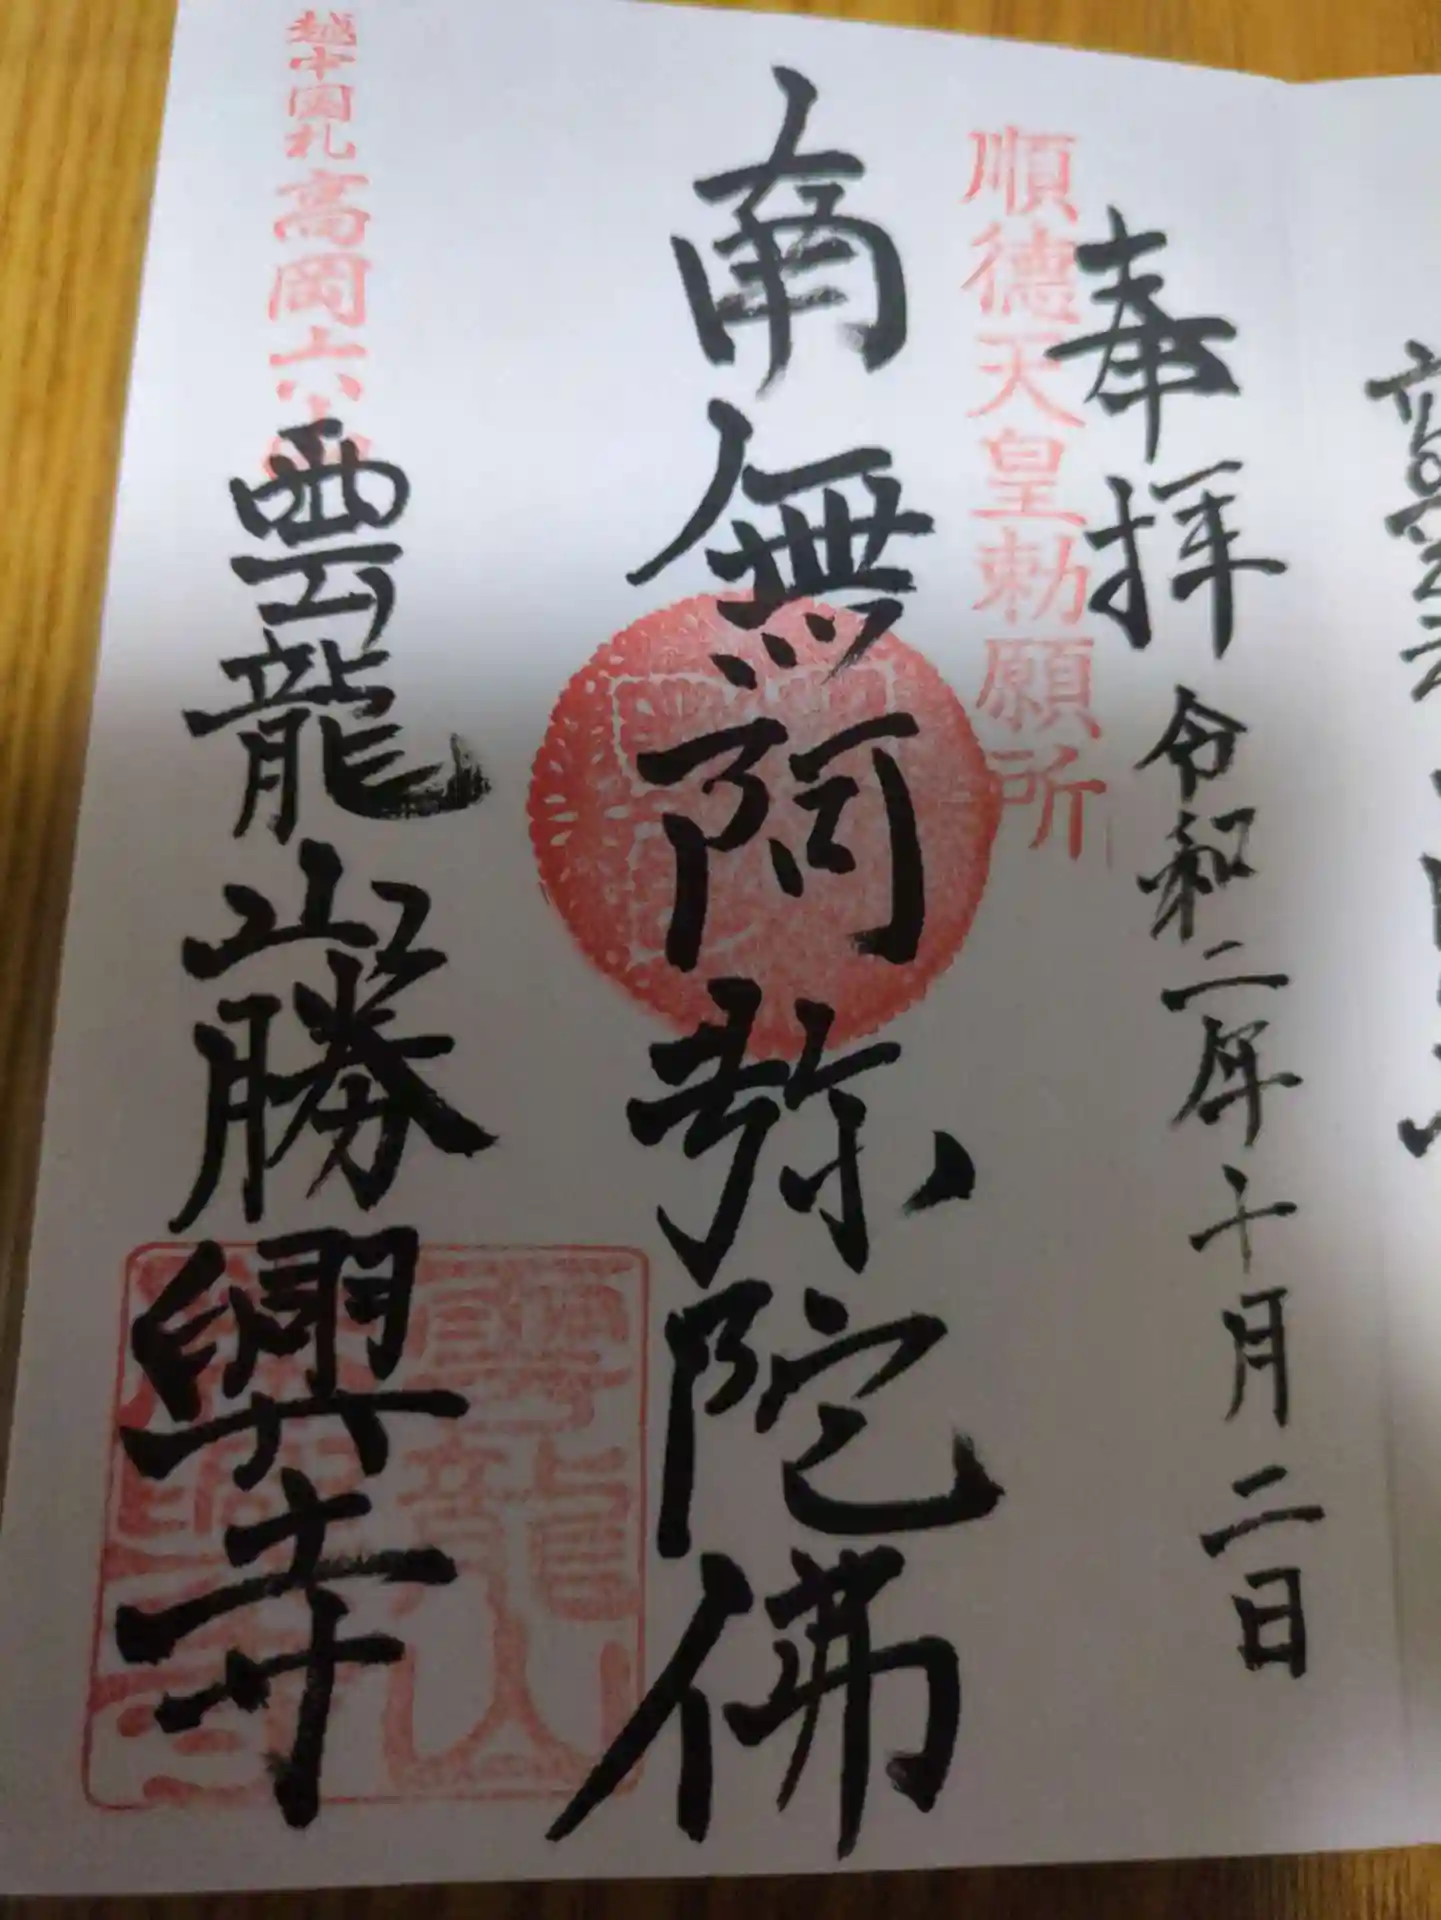 奉拝 令和二年十月二日
順德天皇勅願所
南無阿弥陀佛
越中國札 高岡六
雲龍山勝興寺
雲龍山